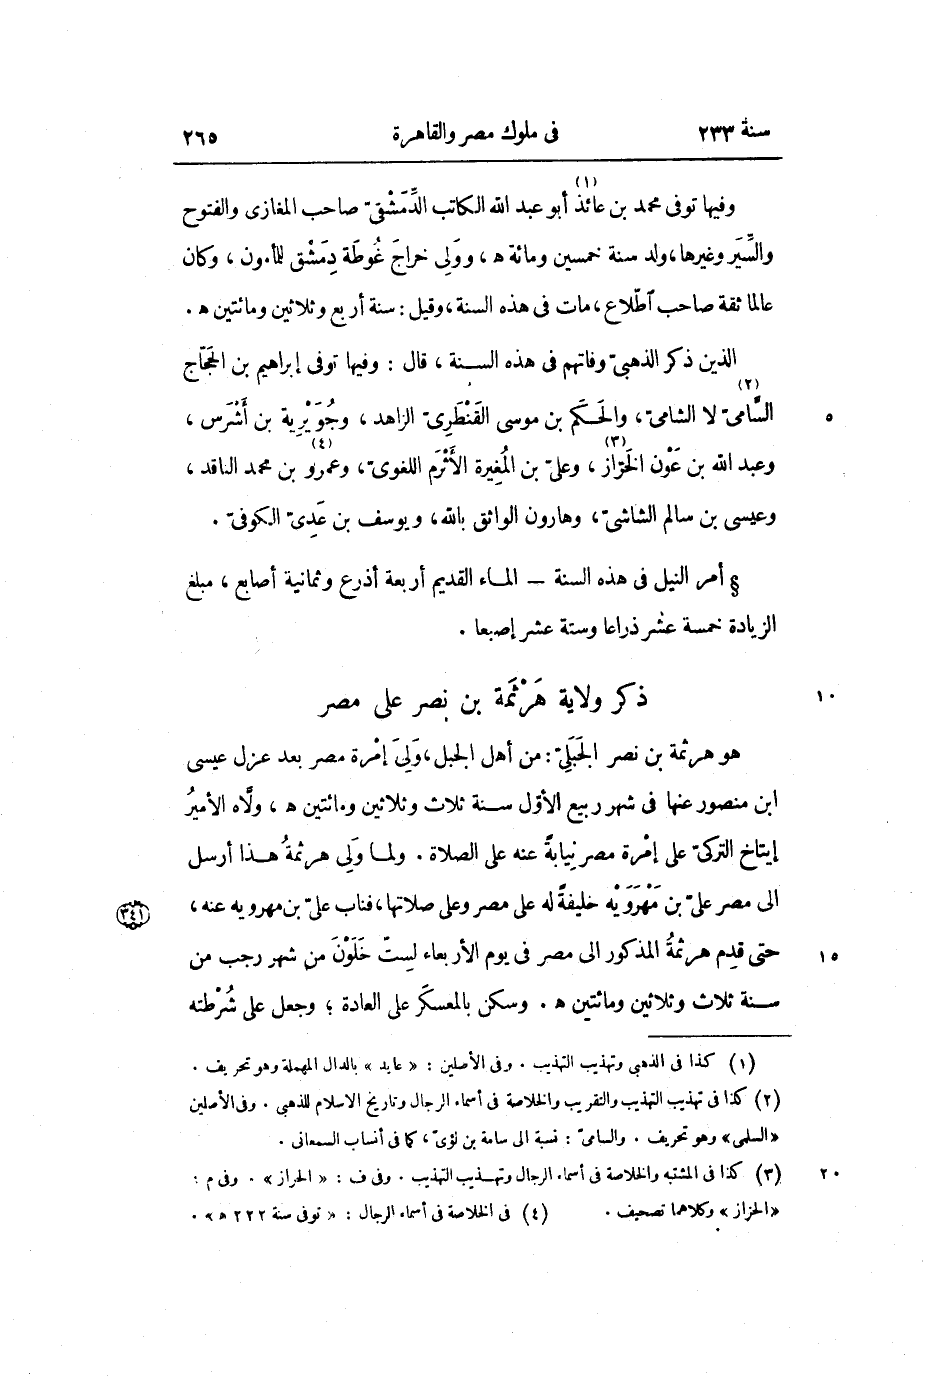 سنة ٢٣٣ فى ملوك مصر والقاهرة ٢٦٥
وفيها توفى محمد بن عائذ (١) أبو عبد الله الكاتب الدِّمَشْقىّ صاحب المغازى والفتوح
والسِّيَر وغيرها، ولد سنة خمسين ومائة ه، وولِى خراجَ غُوطَة دِمَشْق للأمون، وكان
عالما ثقة صاحب اَطّلاع، مات فى هذه السنة، وقيل: سنة أربع وثلاثين ومائتين ه.
الذين ذكر الذهبىّ وفاتهم فى هذه السنة، قال: وفيها توفى إبراهيم بن الحَجّاج
السَّامىّ (٢) لا الشامىّ، والحَكَم بن موسى القَنْطَرِىّ الزاهد، وجُوَيْرِية بن أَشْرَس، ٥
وعبد الله بن عَوْن الخَرّاز (٣)، وعلىّ بن المُغِيرة الأَثْرَم اللغوىّ، وعمرو (٤) بن محمد الناقد،
وعيسى بن سالم الشاشىّ، وهارون الواثق بالله، ويوسف بن عَدِىّ الكوفىّ.
§ أمر النيل فى هذه السنة — الماء القديم أربعة أذرع وثمانية أصابع، مبلغ
الزيادة خمسة عشر ذراعا وستة عشر إصبعا.
ذكر ولاية هَرْثَمَة بن نصر على مصر ١٠
هو هرثمة بن نصر الجَبَلِىّ: من أهل الجبل، وَلِىَ إمْرة مصر بعد عزل عيسى
ابن منصور عنها فى شهر ربيع الأوّل سنة ثلاث وثلاثين ومائتين ه، ولّاه الأميرُ
إيتاخ التركىّ على إمْرة مصر نِيابةً عنه على الصلاة. ولما وَلِى هرثمةُ هذا أرسل
الى مصر علىّ بن مَهْرَوَيْه خليفةً له على مصر وعلى صلاتها، فناب علىّ بن مهرويه عنه، ٣٤١
حتى قدِم هرثمةُ المذكور الى مصر فى يوم الأربعاء لِستّ خَلَوْنَ من شهر رجب من ١٥
سنة ثلاث وثلاثين ومائتين ه. وسكن بالمعسكر على العادة؛ وجعل على شُرْطته
(١) كذا فى الذهبى وتهذيب التهذيب. وفى الأصلين: «عايد» بالدال المهملة وهو تحريف.
(٢) كذا فى تهذيب التهذيب والتقريب والخلاصة فى أسماء الرجال وتاريخ الاسلام للذهبى. وفى الأصلين
«السلمى» وهو تحريف. والسامىّ: نسبة الى سامة بن لؤىّ، كما فى أنساب السمعانى.
(٣) كذا فى المشتبه والخلاصة فى أسماء الرجال وتهذيب التهذيب. وفى ف: «الحراز». وفى م: ٢٠
«الخزاز» وكلاهما تصحيف. (٤) فى الخلاصة فى أسماء الرجال: «توفى سنة ٢٢٢ ه».